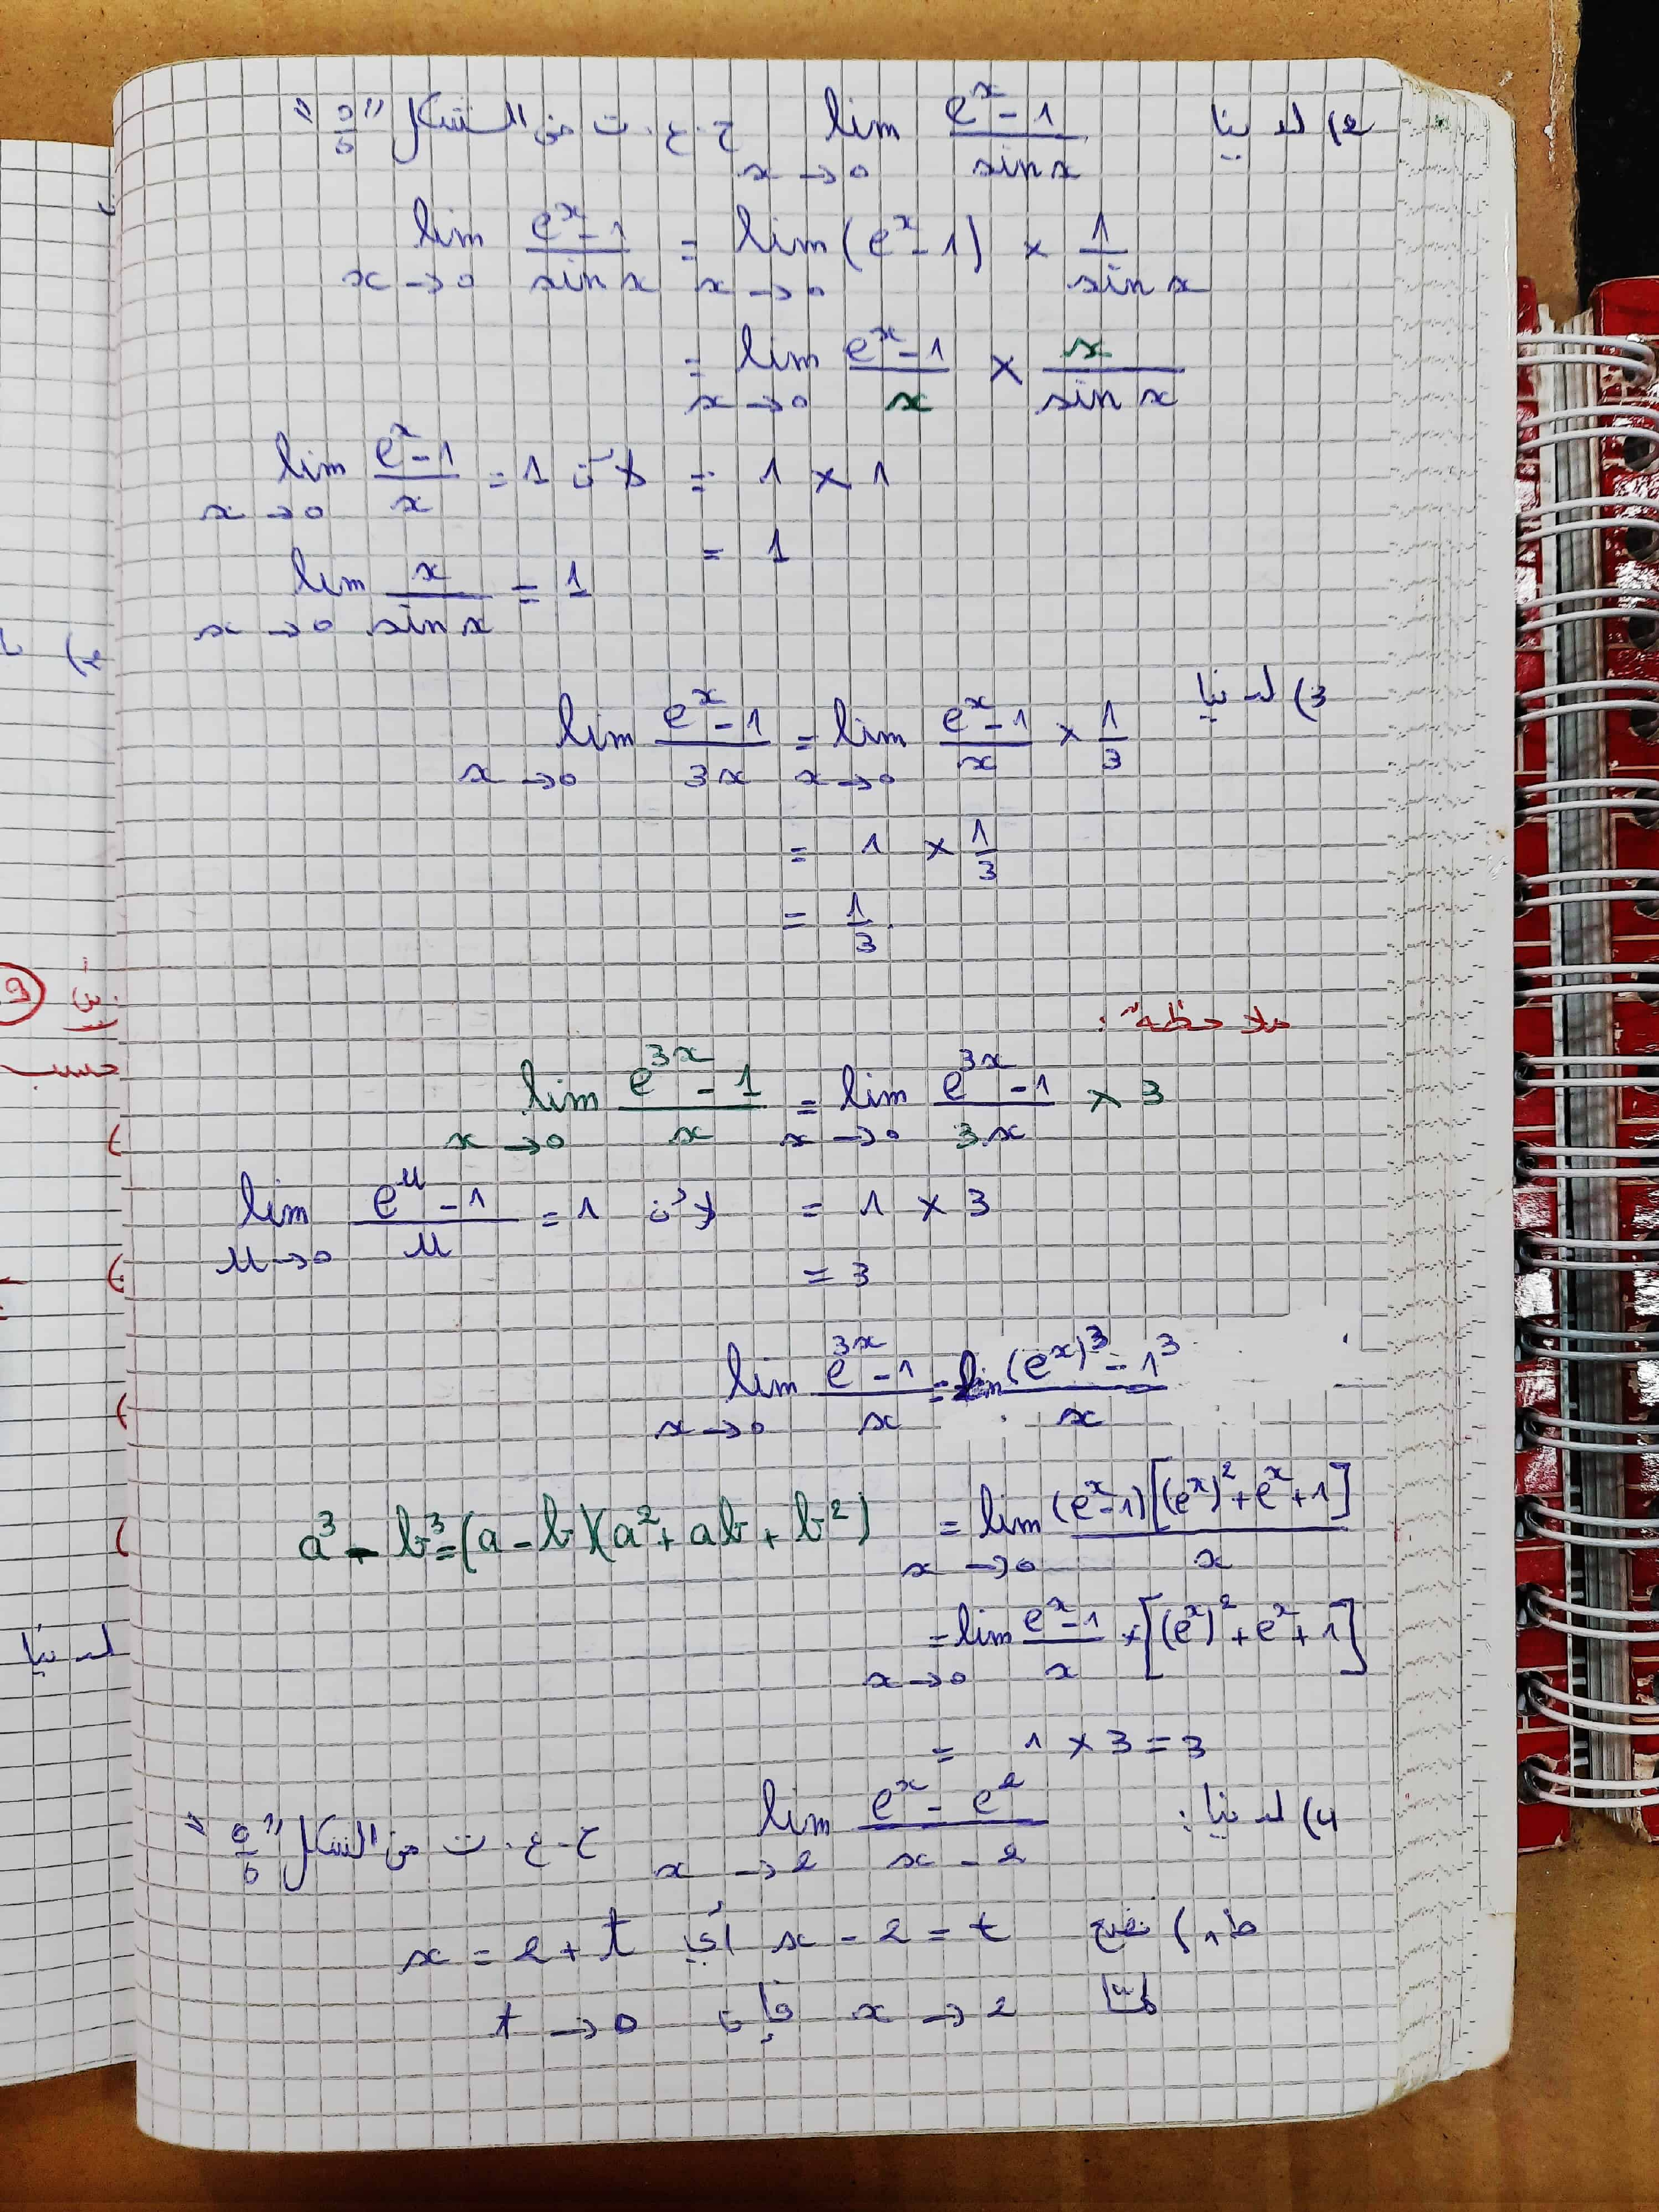 2) لدينا lim_{x→0} (e^x - 1)/(sin x) ح.ع.ت من الشكل "0/0"
lim_{x→0} (e^x - 1)/(sin x) = lim_{x→0} (e^x - 1) × 1/(sin x)
= lim_{x→0} (e^x - 1)/x × x/(sin x)
= 1 × 1 لأن lim_{x→0} (e^x - 1)/x = 1
= 1
lim_{x→0} x/(sin x) = 1
3) لدينا
lim_{x→0} (e^x - 1)/(3x) = lim_{x→0} (e^x - 1)/x × 1/3
= 1 × 1/3
= 1/3.
ملاحظة:
lim_{x→0} (e^{3x} - 1)/x = lim_{x→0} (e^{3x} - 1)/(3x) × 3
= 1 × 3 لأن lim_{u→0} (e^u - 1)/u = 1
= 3
lim_{x→0} (e^{3x} - 1)/x = lim ((e^x)^3 - 1^3)/x
= lim_{x→0} ((e^x - 1)[(e^x)^2 + e^x + 1])/x
a^3 - b^3 = (a - b)(a^2 + ab + b^2)
= lim_{x→0} (e^x - 1)/x × [(e^x)^2 + e^x + 1]
= 1 × 3 = 3
4) لدينا: lim_{x→2} (e^x - e^2)/(x - 2) ح.ع.ت من الشكل "0/0"
ط1) نضع x - 2 = t أي x = 2 + t
لمّا x → 2 فإن t → 0
9
حسب
لدينا